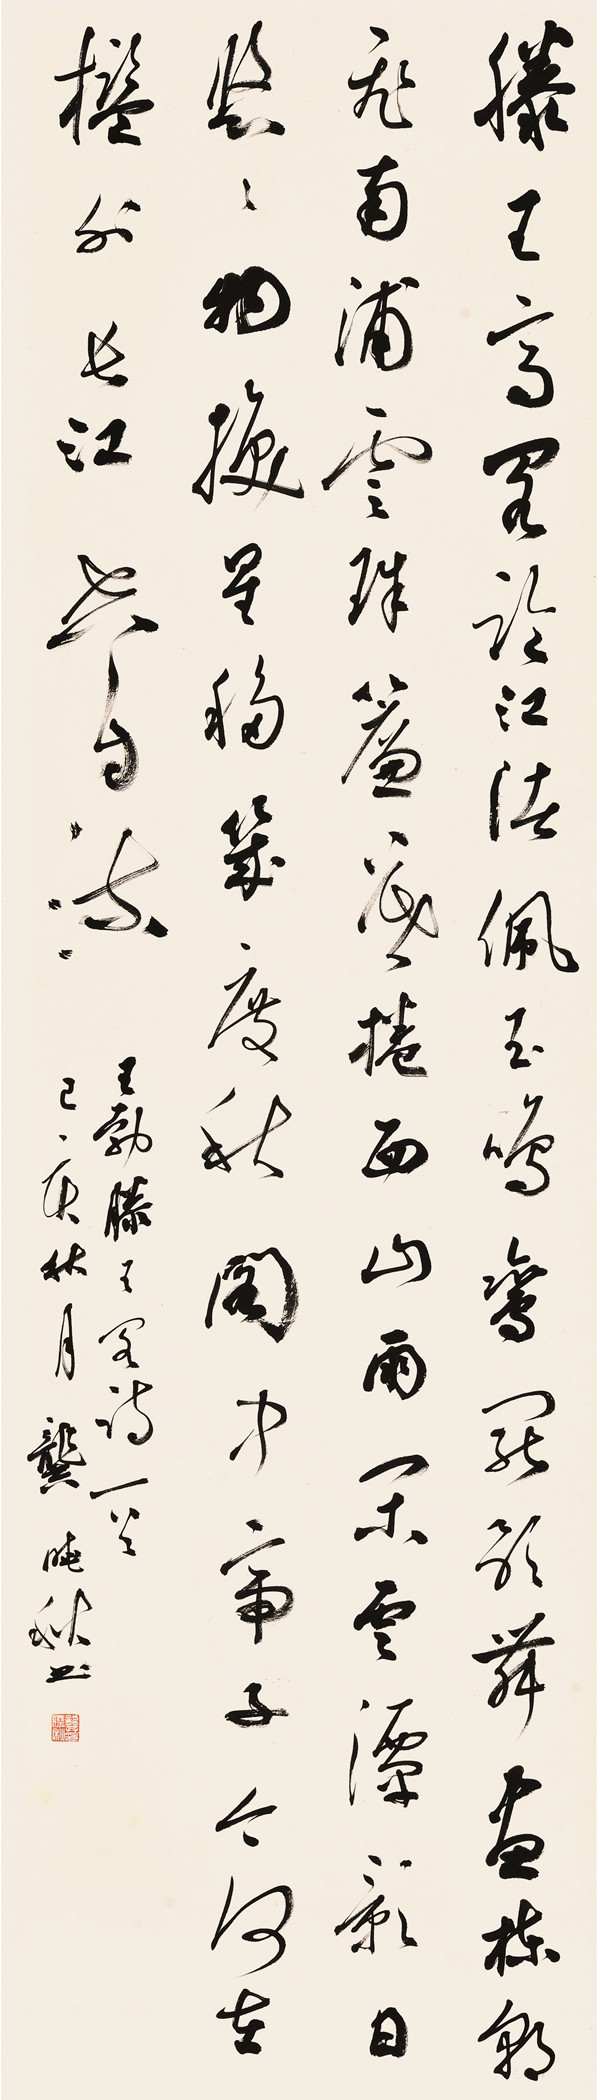 滕王高閣臨江渚佩玉鳴鸞罷歌舞畫棟朝
飛南浦雲珠簾暮捲西山雨閑雲潭影日
悠々物換星移幾度秋閣中帝子今何在
檻外長江空自流
王勃滕王閣詩一首
己亥秋月龔秋書